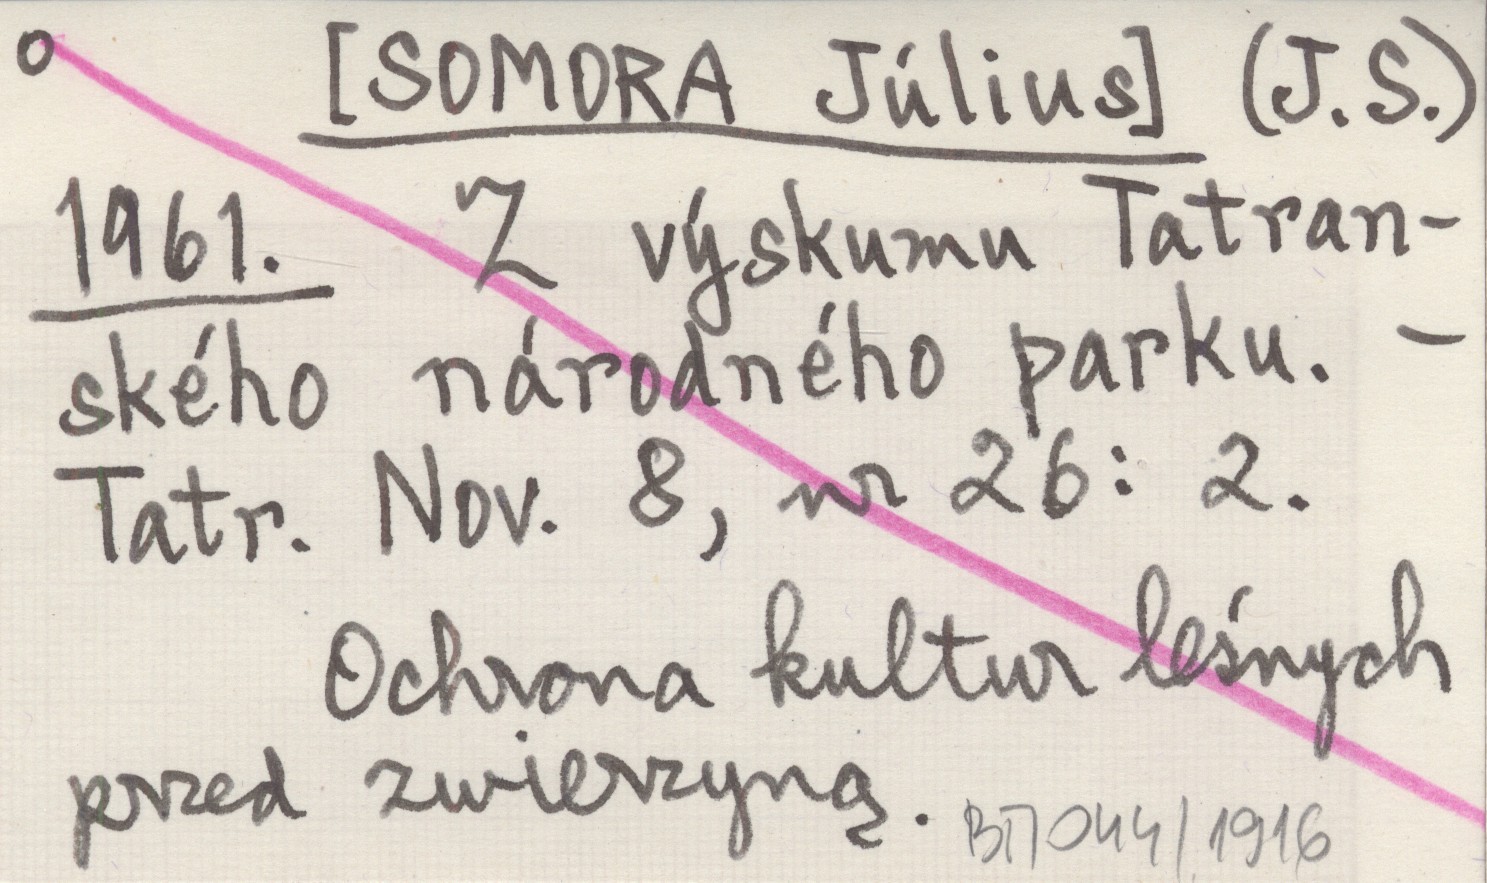 o [SOMORA Július] (J.S.)
1961. Z výskumu Tatran-
ského národného parku. –
Tatr. Nov. 8, nr 26: 2.
Ochrona kultur leśnych
przed zwierzyną. 044/1916